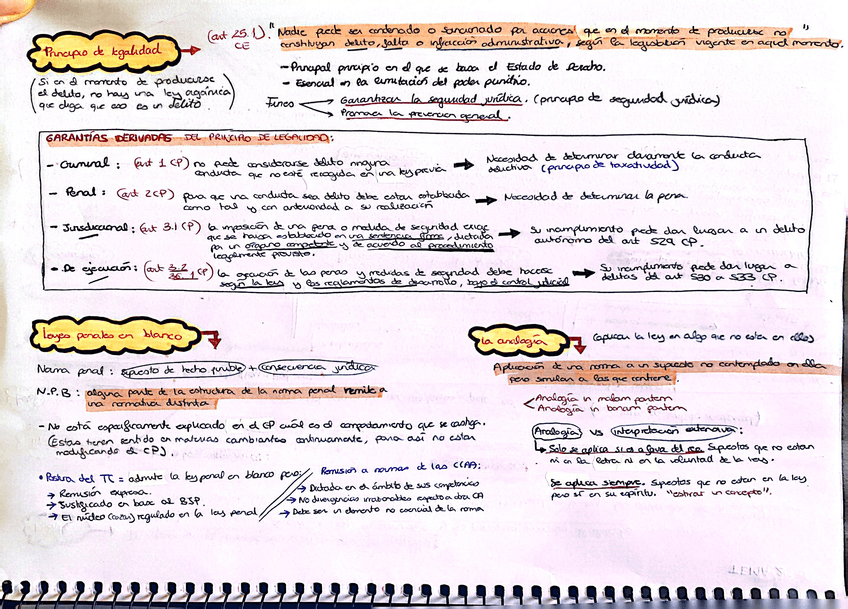 Principio de legalidad → (art 25.1). CE "Nadie puede ser condenado o sancionado por acciones que en el momento de producirse no
constituyan delito, falta o infracción administrativa, según la legislación vigente en aquel momento."
(Si en el momento de producirse
el delito, no hay una ley orgánica
que diga que eso es un delito)
- Principal principio en el que se basa el Estado de Derecho.
- Esencial en la limitación del poder punitivo.
Garantizar la seguridad jurídica. (principio de seguridad jurídica)
Promover la prevención general.
GARANTÍAS DERIVADAS DEL PRINCIPIO DE LEGALIDAD:
- Criminal: (art 1 CP) no puede considerarse delito ninguna
conducta que no esté recogida en una ley previa → Necesidad de determinar claramente la conducta
delictiva (principio de taxatividad)
- Penal: (art 2 CP) para que una conducta sea delito debe estar establecida
como tal y con anterioridad a su realización → Necesidad de determinar la pena.
- Jurisdiccional: (art 3.1 CP) la imposición de una pena o medida de seguridad exige
que se haya establecido en una sentencia firme, dictada
por un órgano competente y de acuerdo al procedimiento
legalmente previsto. → Su incumplimiento puede dar lugar a un delito
autónomo del art 529 CP.
- De ejecución: (art 3.2 CP) la ejecución de las penas y medidas de seguridad debe hacerse
según la ley y los reglamentos de desarrollo, bajo el control judicial → Su incumplimiento puede dar lugar a
delitos del art 530 a 533 CP.
Leyes penales en blanco
Norma penal: supuesto de hecho punible + consecuencia jurídica
N.P.B: alguna parte de la estructura de la norma penal remite a
una normativa distinta
- No está específicamente explicado en el CP cuál es el comportamiento que se castiga.
(Estas tienen sentido en materias cambiantes continuamente, para así no estar
modificando el CP)
• Postura del TC = admite la ley penal en blanco pero:
→ Remisión expresa.
→ Justificado en base al BJP.
→ El núcleo regulado en la ley penal
Remisión a normas de las CCAA:
→ Dictada en el ámbito de sus competencias
→ No divergencias irrazonables respecto a otra CA
→ Debe ser un elemento no esencial de la norma
La analogía (aplicar la ley en algo que no está en ella)
Aplicación de una norma a un supuesto no contemplado en ella
pero similar a los que contiene.
Analogía in malam partem
Analogía in bonam partem
Analogía vs interpretación extensiva:
→ Solo se aplica si es a favor del reo. Supuestos que no están
ni en la letra ni en la voluntad de la ley.
Se aplica siempre. Supuestos que no están en la ley
pero sí en su espíritu. "estirar un concepto".